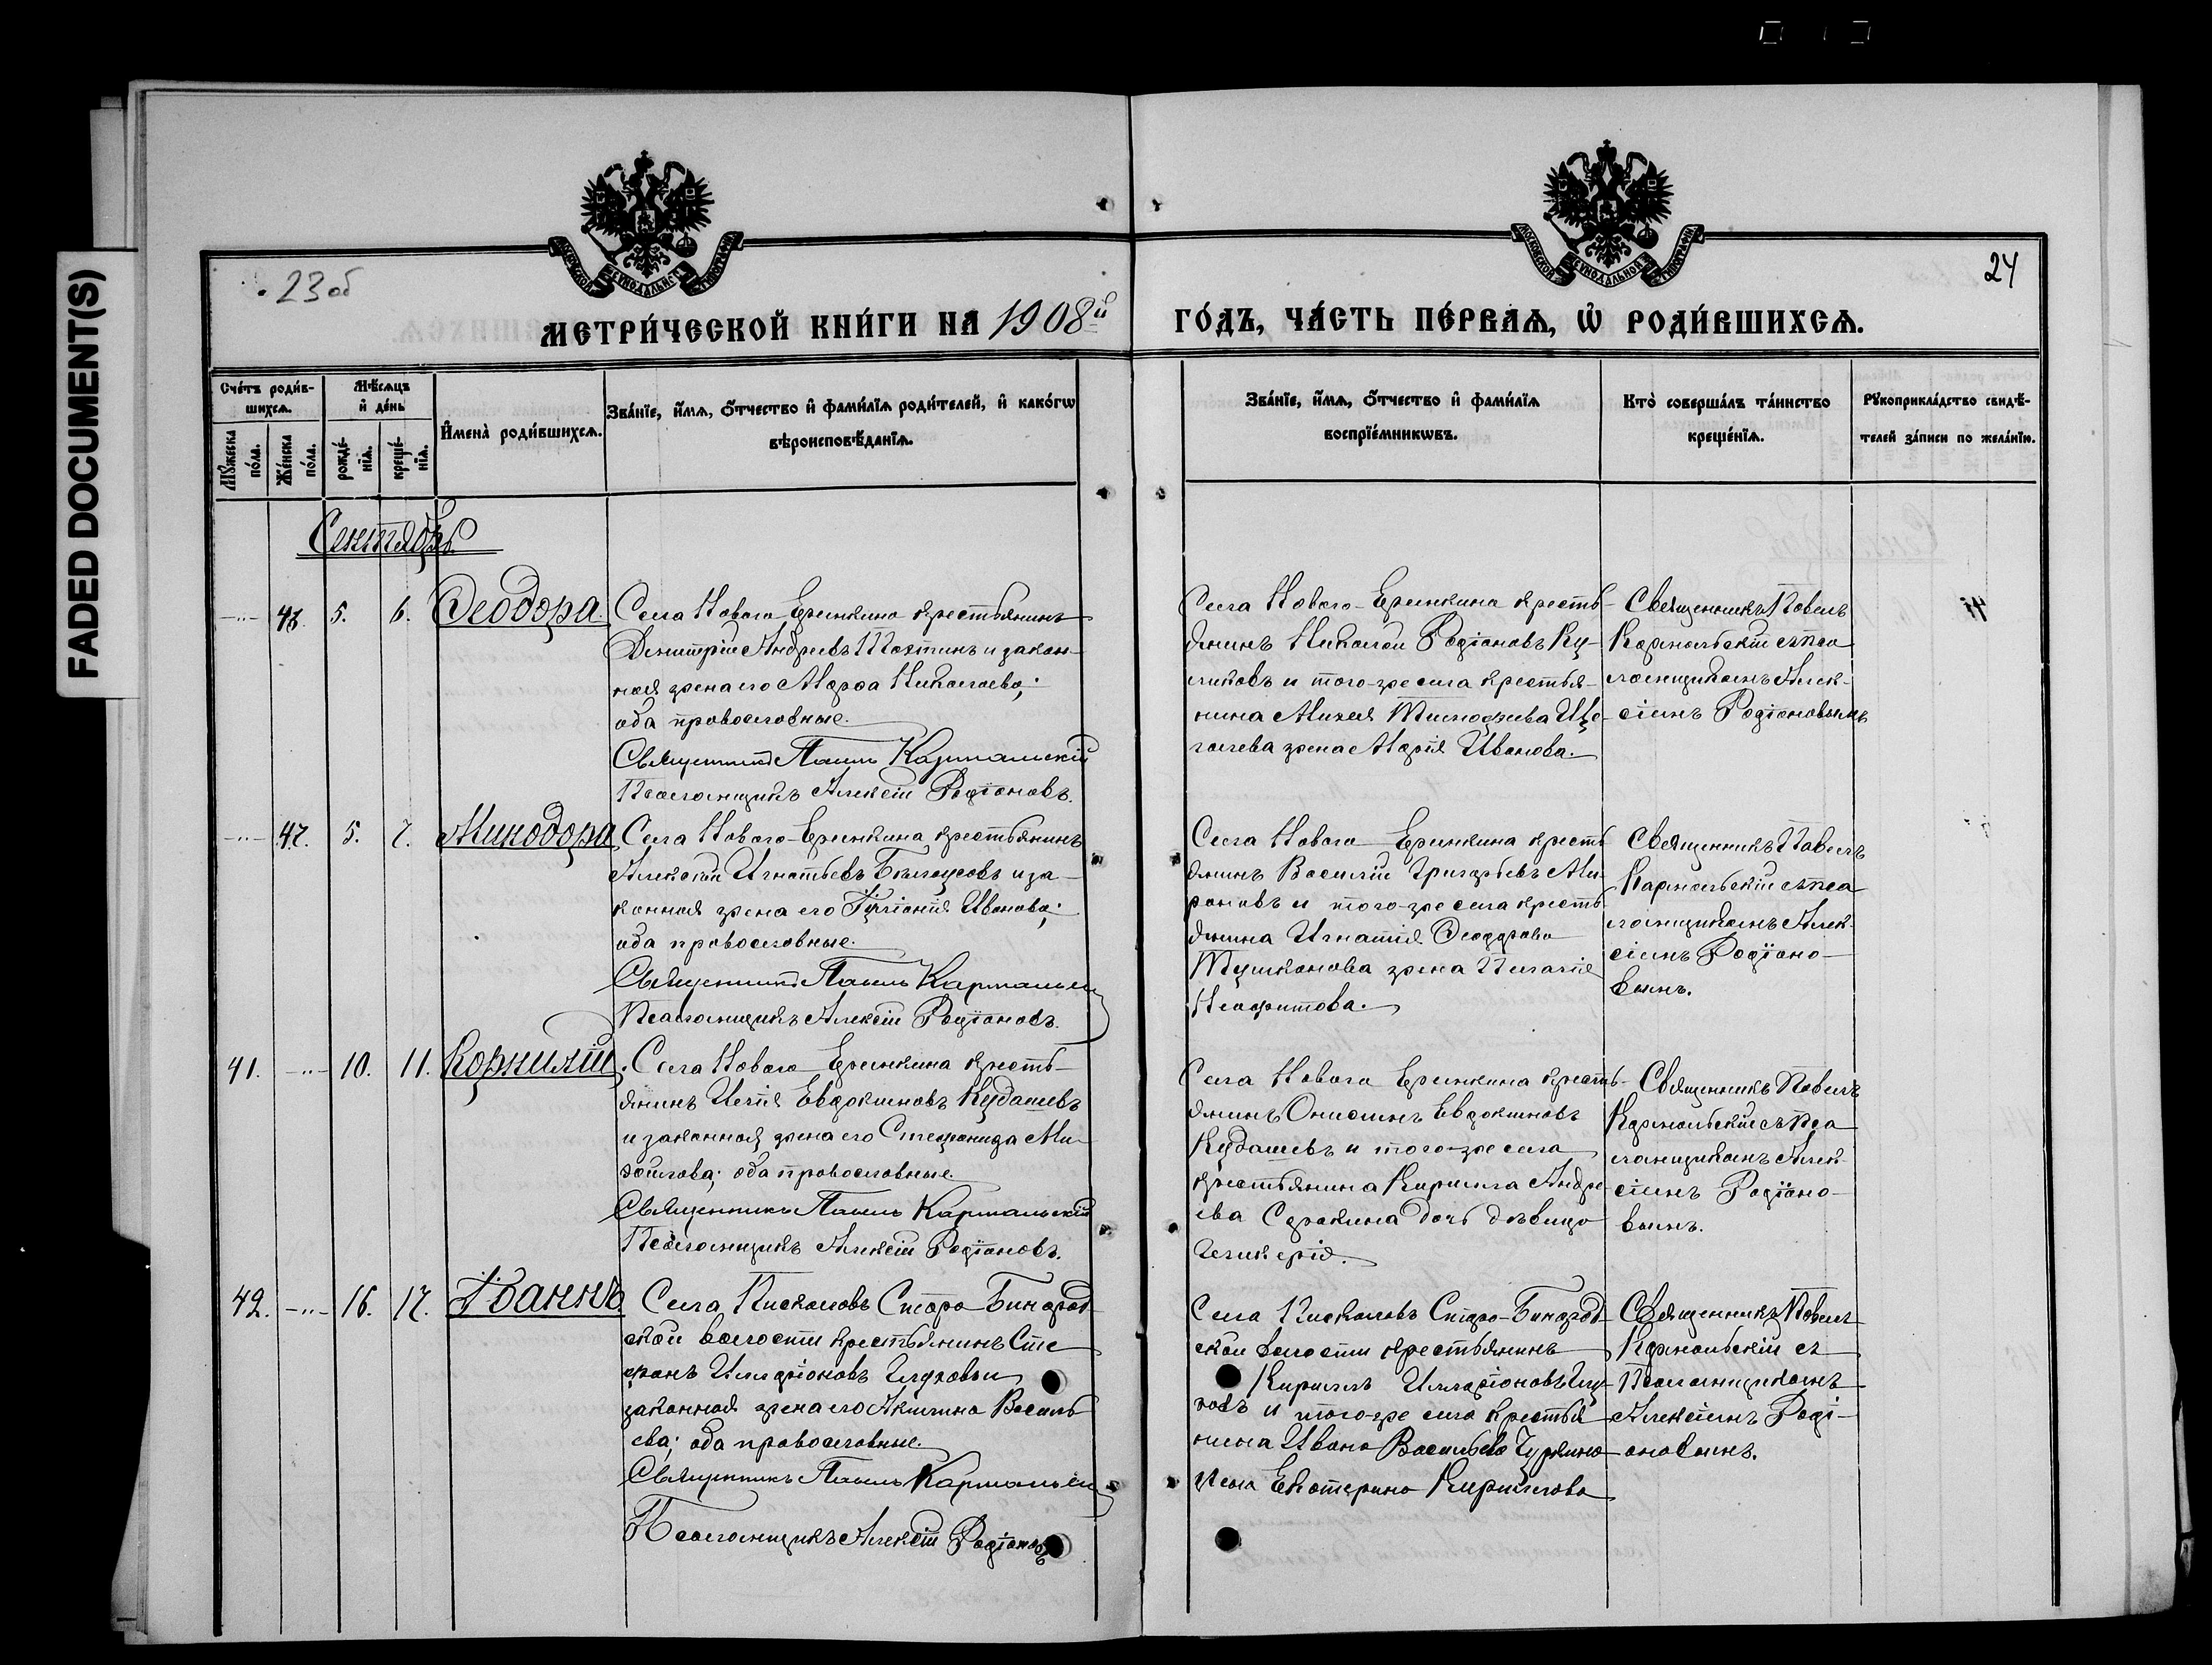 FADED DOCUMENT(S)
23 об
24
МЕТРИ́ЧЕСКОЙ КНИ́ГИ НА 1908й ГО́ДЪ, ЧА́СТЬ ПЕ́РВАѦ, Ѡ҆ РОДИ́ВШИХСѦ.
Сче́тъ роди́в-
шихсѧ.
Мѣ́сѧцъ
и҆ де́нь
Мꙋ́жеска
по́ла.
Же́нска
по́ла.
рожде́-
нїѧ.
креще́-
нїѧ.
И҆мена̀ роди́вшихсѧ.
Зва́нїе, и҆́мѧ, ѻ҆́тчество и҆ фами́лїѧ роди́телей, и҆ како́гѡ
вѣроисповѣ́данїѧ.
Зва́нїе, и҆́мѧ, ѻ҆́тчество и҆ фами́лїѧ
воспрїе́мникѡвъ.
Кто̀ соверша́лъ та́инство
креще́нїѧ.
Рꙋкоприкла́дство свидѣ́-
телей за́писи по жела́нїю.
Сентябрь
46. 5. 6. Ѳеодора.
Села Новаго Еремкина крестьянинъ
Димитрій Андреевъ и закон-
ная жена его Марѳа Николаева;
оба православные.
Священникъ Павелъ Кармальскій
Псаломщикъ Алексій Родіоновъ.
Села Новаго-Еремкина кресть-
янинъ Николай Родіоновъ Ку-
ликовъ и того-же села крестья-
нина Михея Тимофеева Ще-
голева жена Марія Иванова.
Священникъ Павелъ
Кармальскій съ пса
ломщикомъ Алек-
сіемъ Родіоновымъ
47. 5. 7. Минодора
Села Новаго-Еремкина крестьянинъ
Алексій Игнатьевъ Бѣлоусовъ и за-
конная жена его Іуліанія Иванова;
оба православные.
Священникъ Павелъ Кармальскій
Псаломщикъ Алексій Родіоновъ.
Села Новаго Еремкина кресть
янинъ Василій Григорьевъ Ми-
роновъ и того-же села кресть
янина Игнатія Ѳеодорова
Тушканова жена Пелагія
Неофитова.
Священникъ Павелъ
Кармальскій съ пса
ломщикомъ Алек-
сіемъ Родіоно-
вымъ.
41. 10. 11. Корнилій.
Села Новаго Еремкина кресть-
янинъ Илія Евдокимовъ Кудашевъ
и законная жена его Стефанида Ми-
хайлова; оба православные.
Священникъ Павелъ Кармальскій
Псаломщикъ Алексій Родіоновъ.
Села Новаго Еремкина кресть-
янинъ Онисимъ Евдокимовъ
Кудашевъ и того-же села
крестьянина Кирилла Андре
ева Сорокина дочь дѣвица
Гликерія.
Священникъ Павелъ
Кармальскій съ Пса
ломщикомъ Алек-
сіемъ Родіоно-
вымъ.
42. 16. 17. Іоаннъ.
Села Пискаловъ Старо-Бинарад
ской волости крестьянинъ Сте
фанъ Илларіоновъ и
законная жена его Акилина Василь
ева; оба православные.
Священникъ Павелъ Кармальскій
Псаломщикъ Алексій Родіоновъ
Села Пискаловъ Старо-Бинарад
ской волости крестьянинъ
Кириллъ Илларіоновъ
и того-же села крестья
нина Ивана Васильева
жена Екатерина Кириллова
Священникъ Павелъ
Кармальскій съ
Псаломщикомъ
Алексіемъ Роді-
оновымъ.